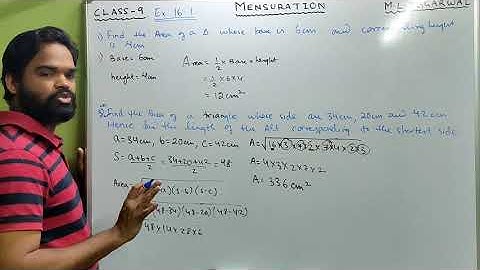 CLASS-9 Ex 16.1 MENSURATION M.L. AGGARWAL
1) Find the Area of a Δ whose base is 6cm and corresponding height
is 4cm
1) Base = 6cm
height = 4cm
Area = 1/2 × Base × height
= 1/2 × 6 × 4
= 12 cm²
Find the Area of a triangle whose side are 34cm, 20cm and 42cm
Hence find the length of the Alt corresponding to the shortest side
a = 34cm, b = 20cm, c = 42cm
S = a+b+c/2 = 34+20+42/2 = 48
Area = (s-b)(s-c)
(48-34)(48-20)(48-42)
48×14×28×6
A = 4×3×2×7×2
A = 336 cm²